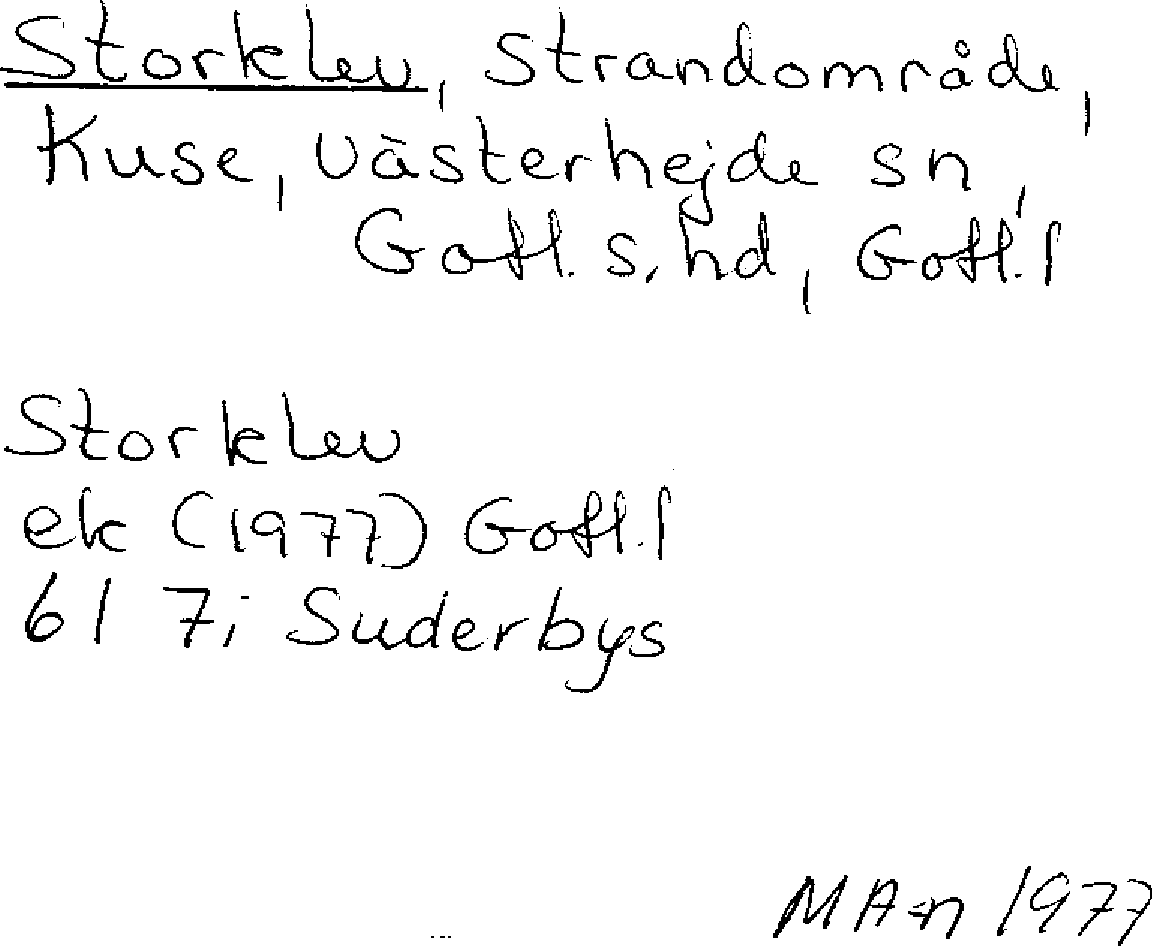 Storklev, Strandområde,
Kuse, Västerhejde sn,
Gotl. s. hd, Gotl. l
Storklev
ek (1977) Gotl. l
6I 7i Suderbys
MA-n 1977